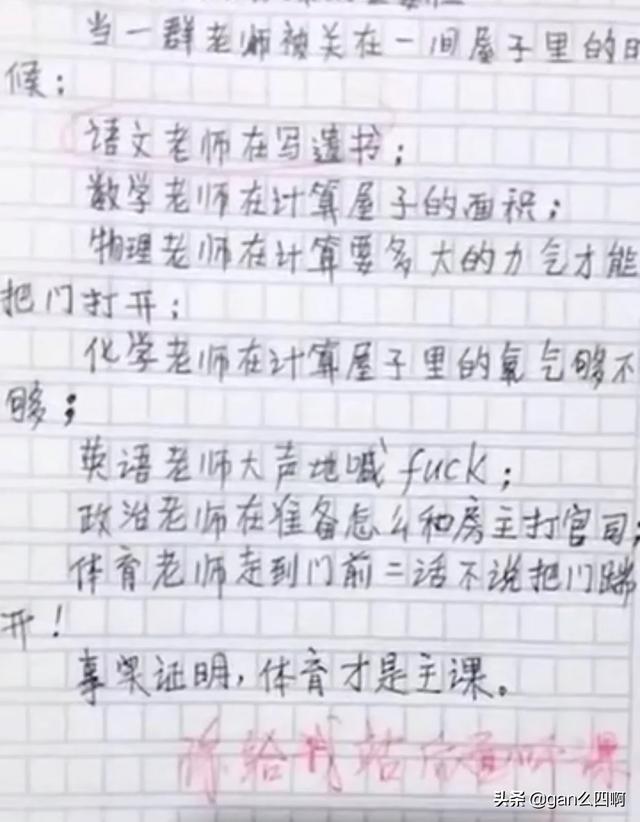 当一群老师被关在一间屋子里的时
候：
语文老师在写遗书；
数学老师在计算屋子的面积；
物理老师在计算要多大的力气才能
把门打开；
化学老师在计算屋子里的氧气够不
够；
英语老师大声地喊fuck；
政治老师在准备怎么和房主打官司；
体育老师走到门前二话不说把门踹
开！
事实证明，体育才是主课。
你给我站 听课
头条 @gan么四啊